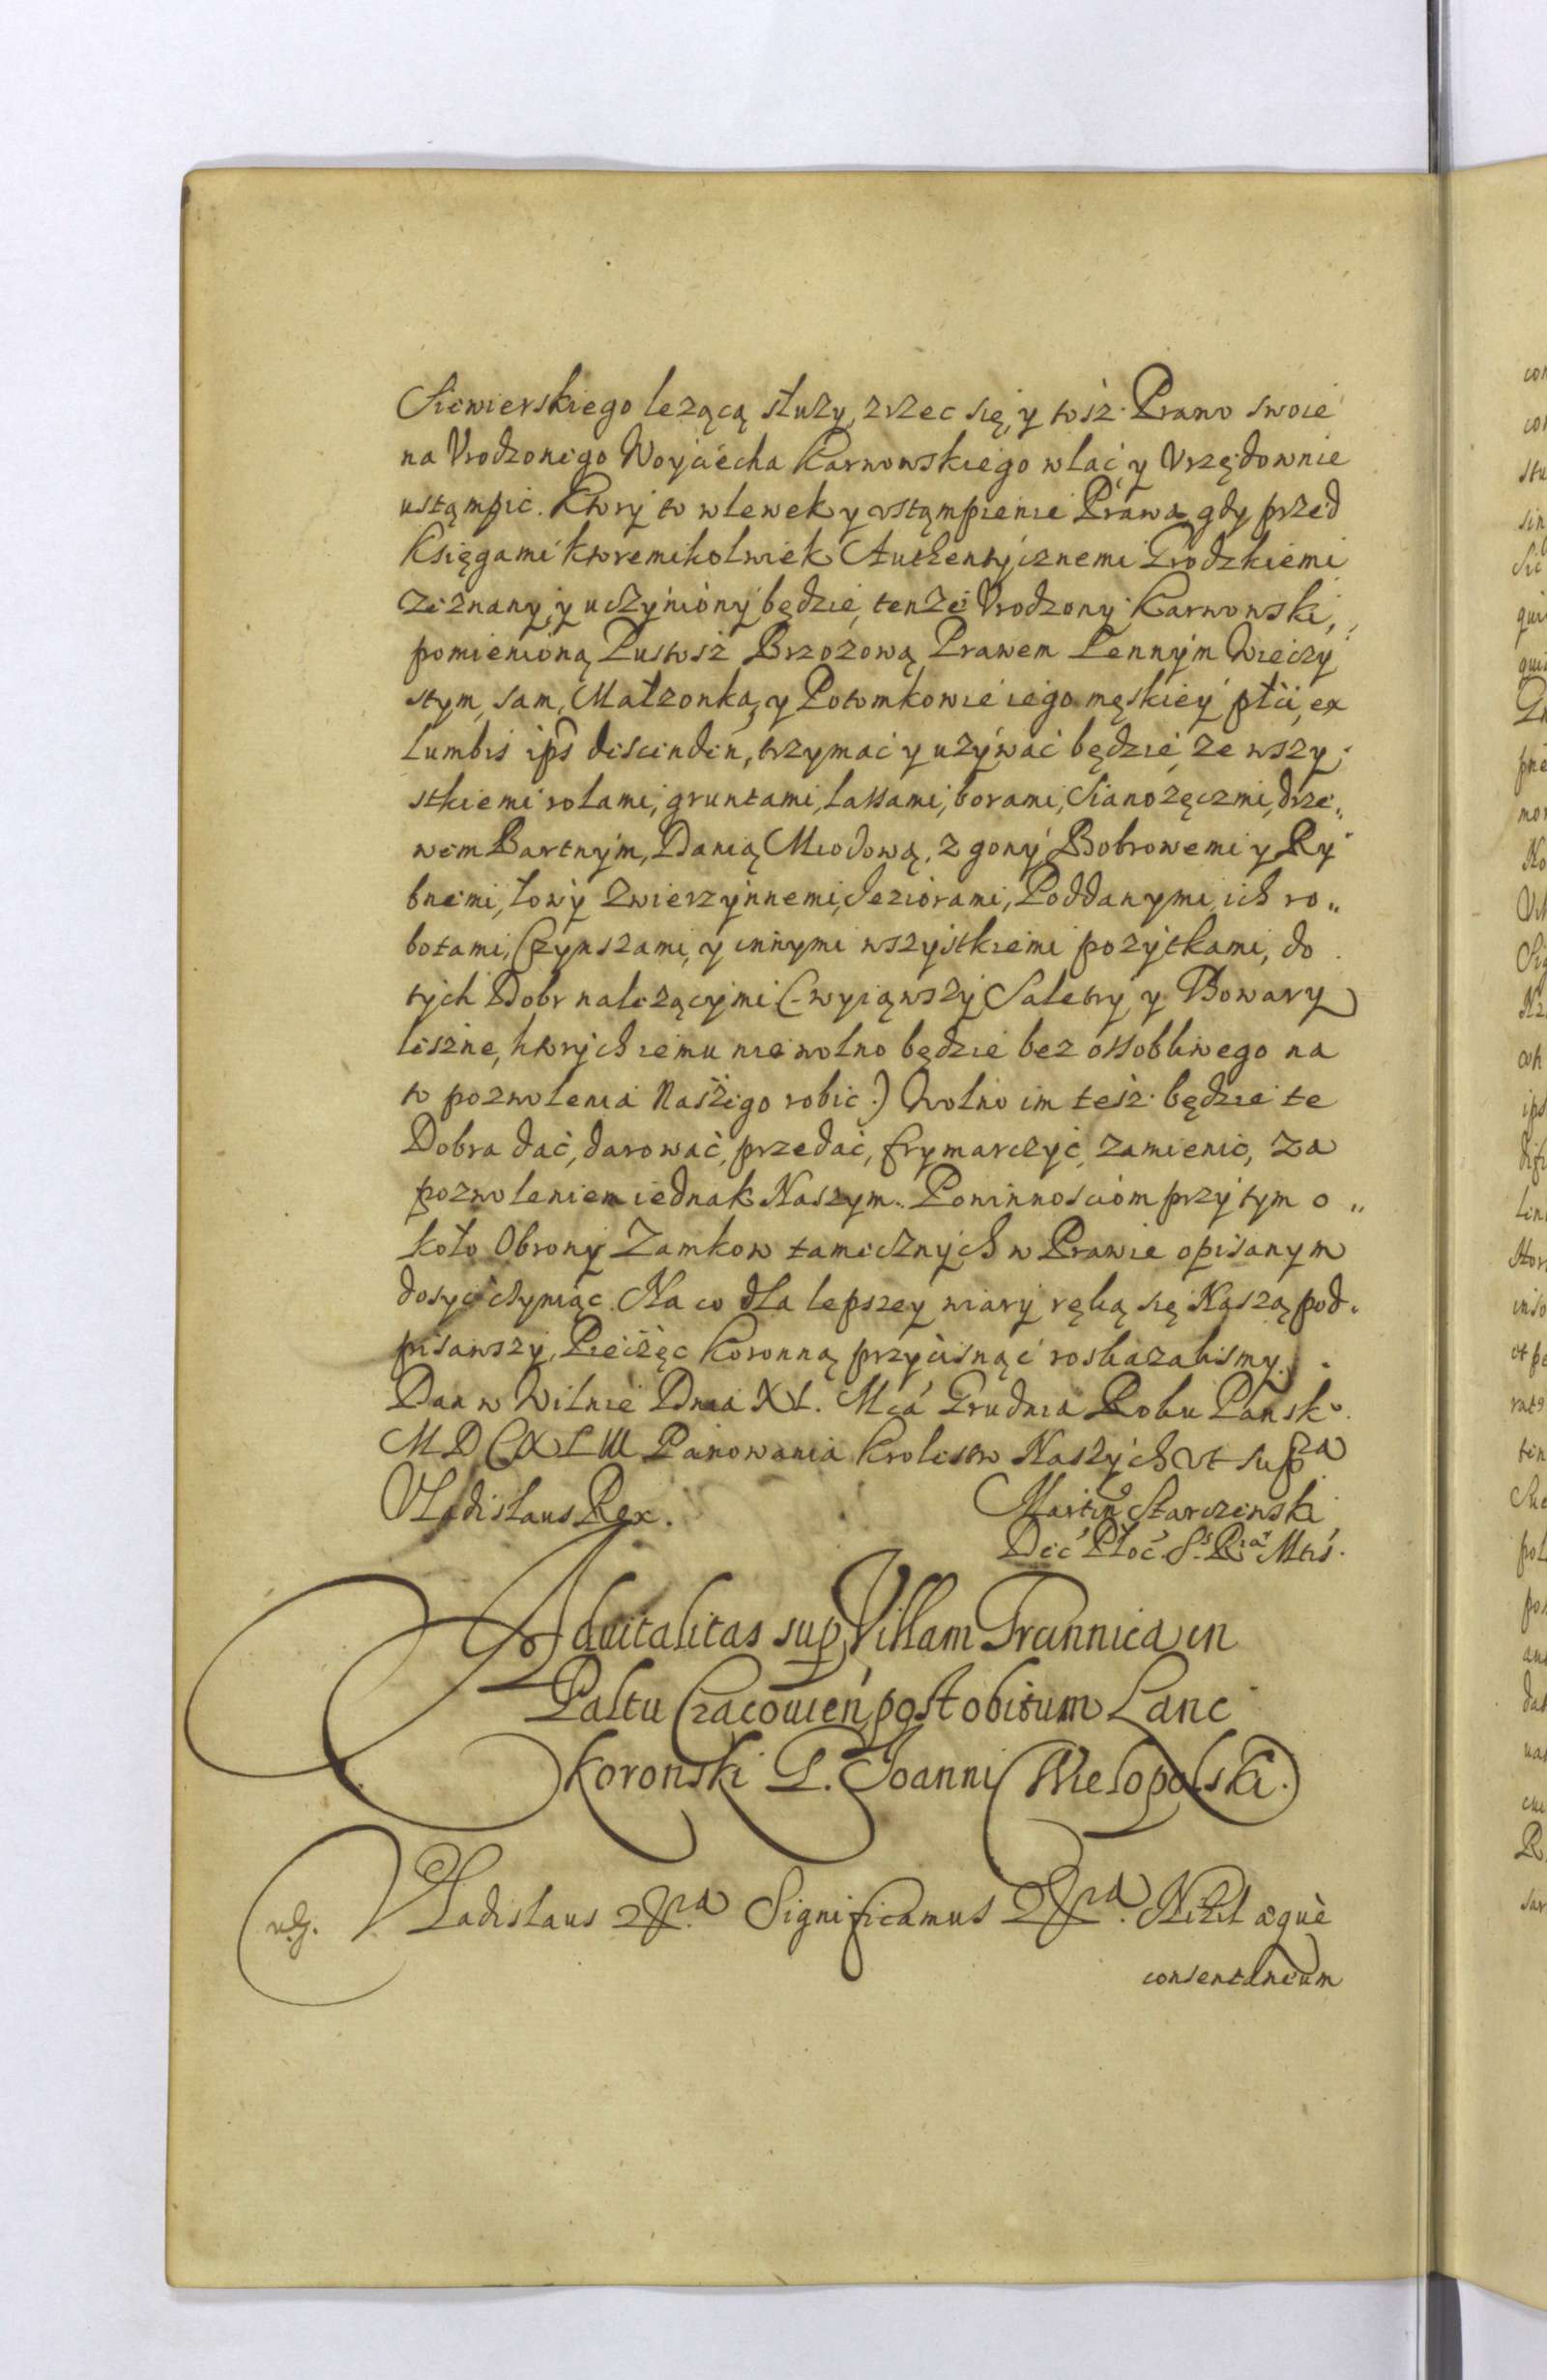 Siewierskiego lezącą słuzy, zrzec się, y tosz Prawo swoie
na Vrodzonego Woyciecha Karnowskiego wlać y Vrzędownie
ustąmpic. Ktory to wlewek y vstąmpienie Prawa gdy przed
Księgami ktoremikolwiek Authentycznemi Grodzkiemi
zeznany, y uczyniony będzie, tenze Vrodzony Karnowski,
pomienioną Pustosz Brzozową Prawem Lennym Wieczy
stym, sam, Małzonka, y Potomkowie iego męskiey płci, ex
lumbis ips descenden, trzymac y uzywać będzie, ze wszy
stkiemi rolami, gruntami, lassami, borami, Sianozęczmi, drze„
wem Bartnym, Danią Miodową, z gony Bobrowemi y Ry
bnemi, łowy zwierzynnemi, Jeziorami, Poddanymi, ich ro„
botami, Czynszami, y innymi wszystkiemi pozytkami, do
tych Dobr nalezącymi (wyiąwszy Saletry y Bowary
leszne, ktorych iemu nie wolno będzie bez ossobliwego na
to pozwolenia Naszego robic.) Wolno im tesz będzie te
Dobra dać, darować, przedać, frymarczyć, zamienić, za
pozwoleniem iednak Naszym. Powinnosciom przytym o„
koło Obrony Zamkow tamecznych w Prawie opisanym
dosyć czyniąc. Na co dla lepszey wiary ręką się Naszą pod„
pisawszy, Pieczęc Koronną przycisnąć roskazalismy.
Dan w Wilnie Dnia XI. Mca Grudnia Roku Pansko
MDCXLIII Panowania Krolestw Naszych vt supra
Vladislaus Rex.
Martin9 Starczewski
Dec Płoc. Ss Ria Mtis.
Aduitalitas sup Villam Trunnica in
Paltu Cracouien post obitum Lanc
koronski G. Joanni Wielopolski.
Vladislaus &ra Significamus &ra. Nihil æquè
consentaneum